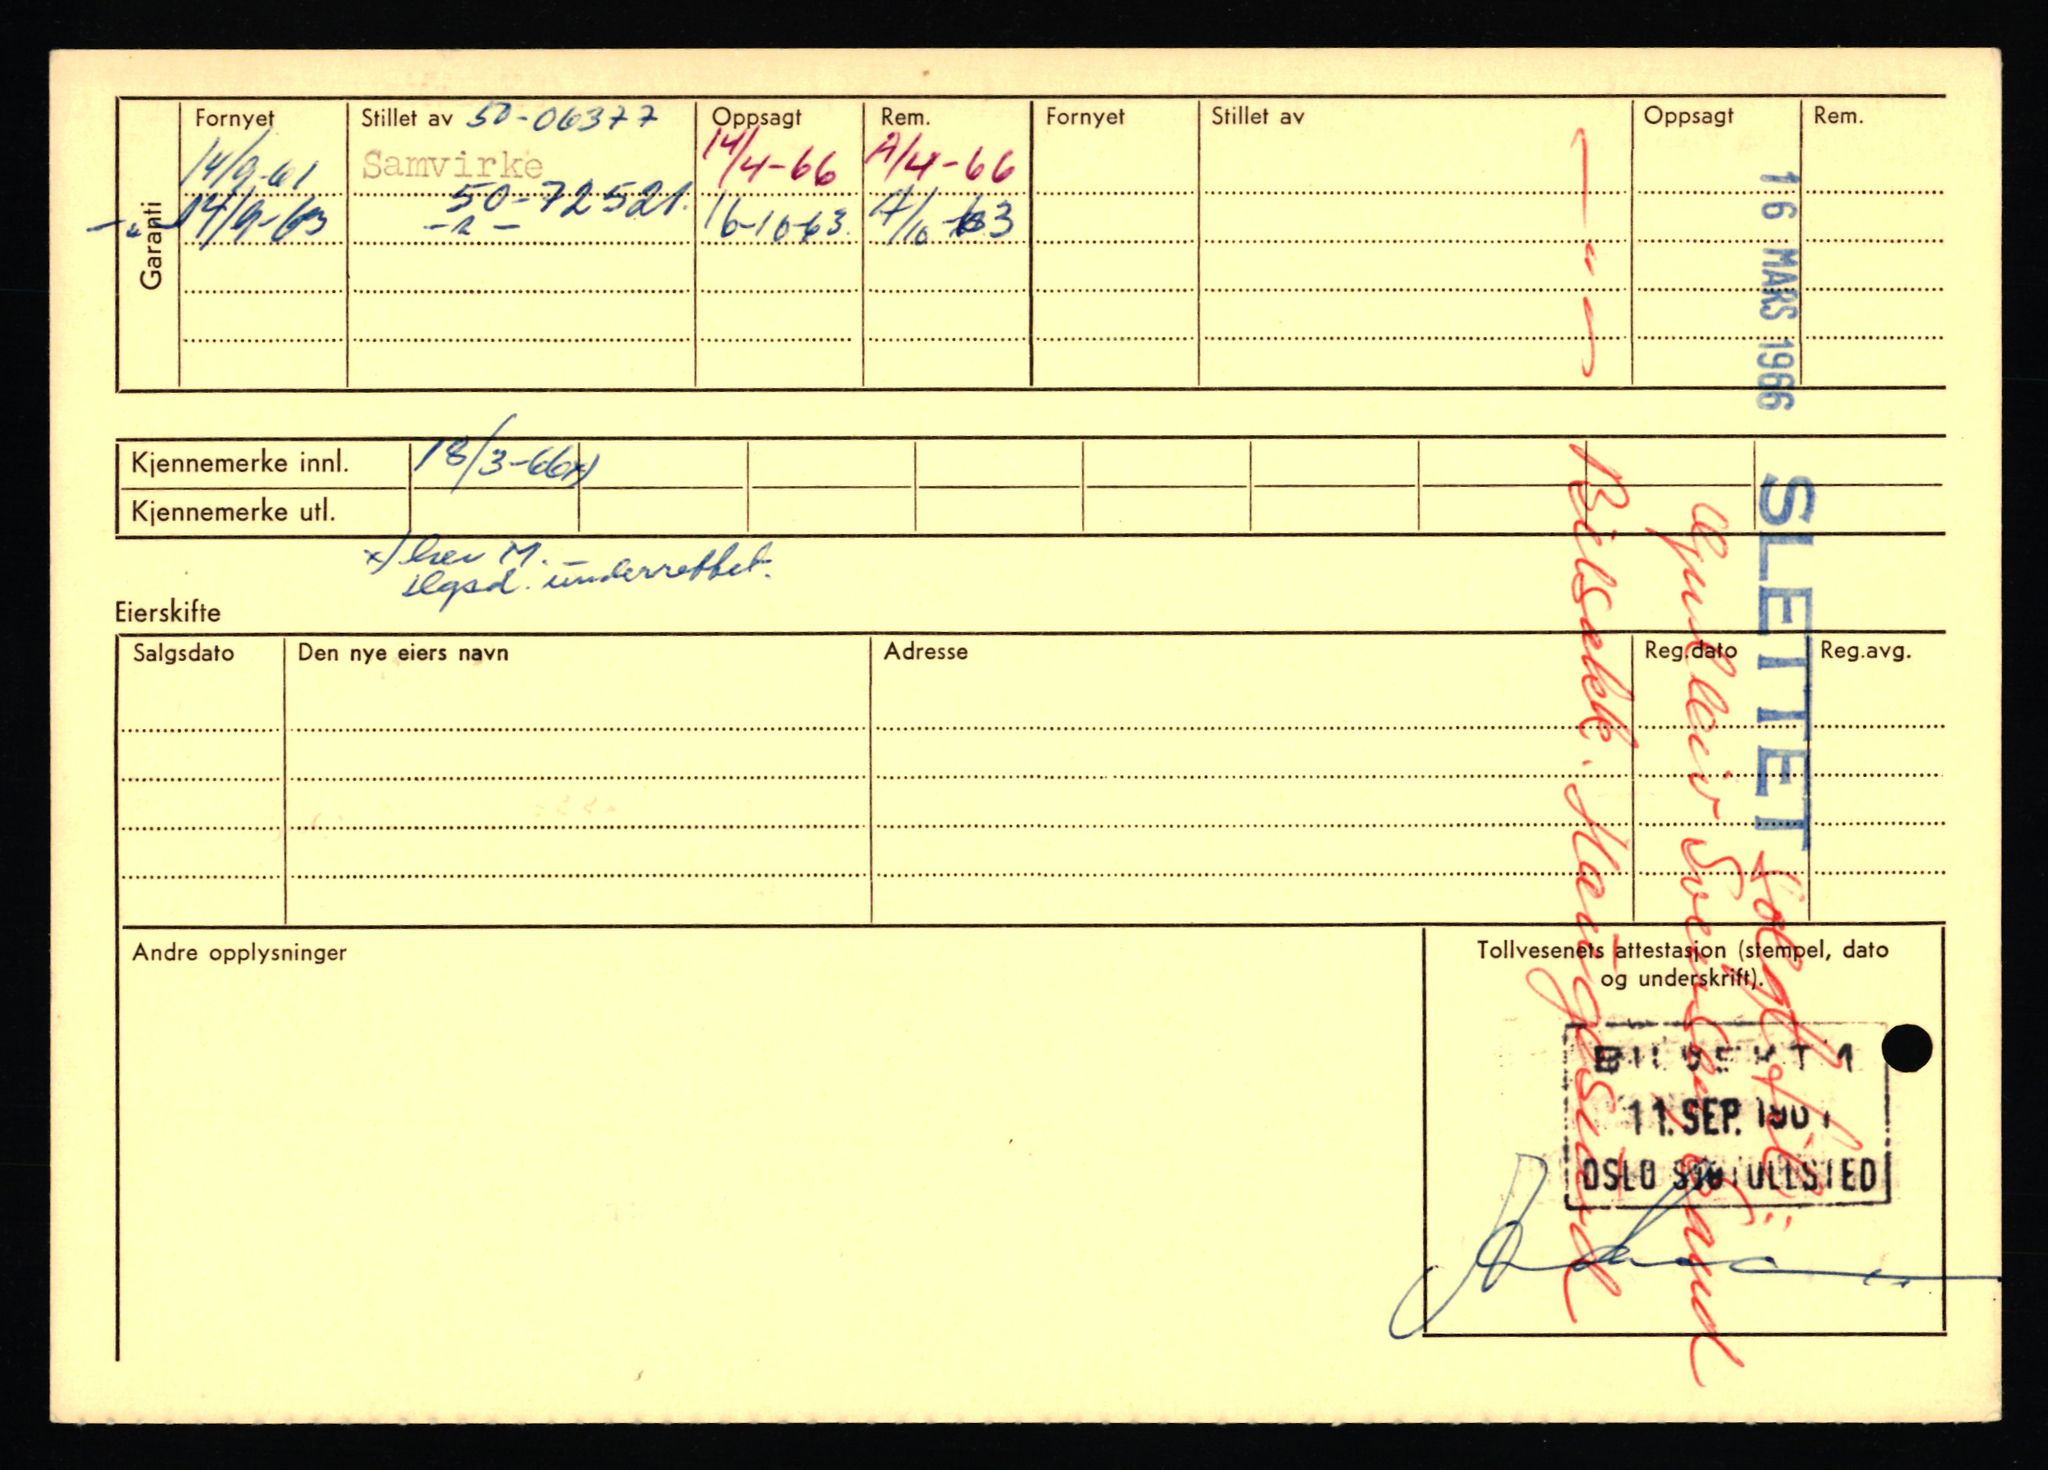 Garanti
Fornyet Stillet av 50-06377 Oppsagt Rem. Fornyet Stillet av Oppsagt Rem.
14/9-61 Samvirke 14/4-66 /4-66
50-72521.
-"- 14/9-63 -"- 16-10-63 /10-63
Kjennemerke innl. 18/3-66 x)
Kjennemerke utl.
x) lrev M.
underrettet.
Eierskifte
Salgsdato Den nye eiers navn Adresse Reg.dato Reg.avg.
Andre opplysninger
Tollvesenets attestasjon (stempel, dato
og underskrift).
11. SEP. 1961
OSLO SJØTOLLSTED
16 MARS 1966
SLETTET
Solgt til
Bilsakk. Haugesund